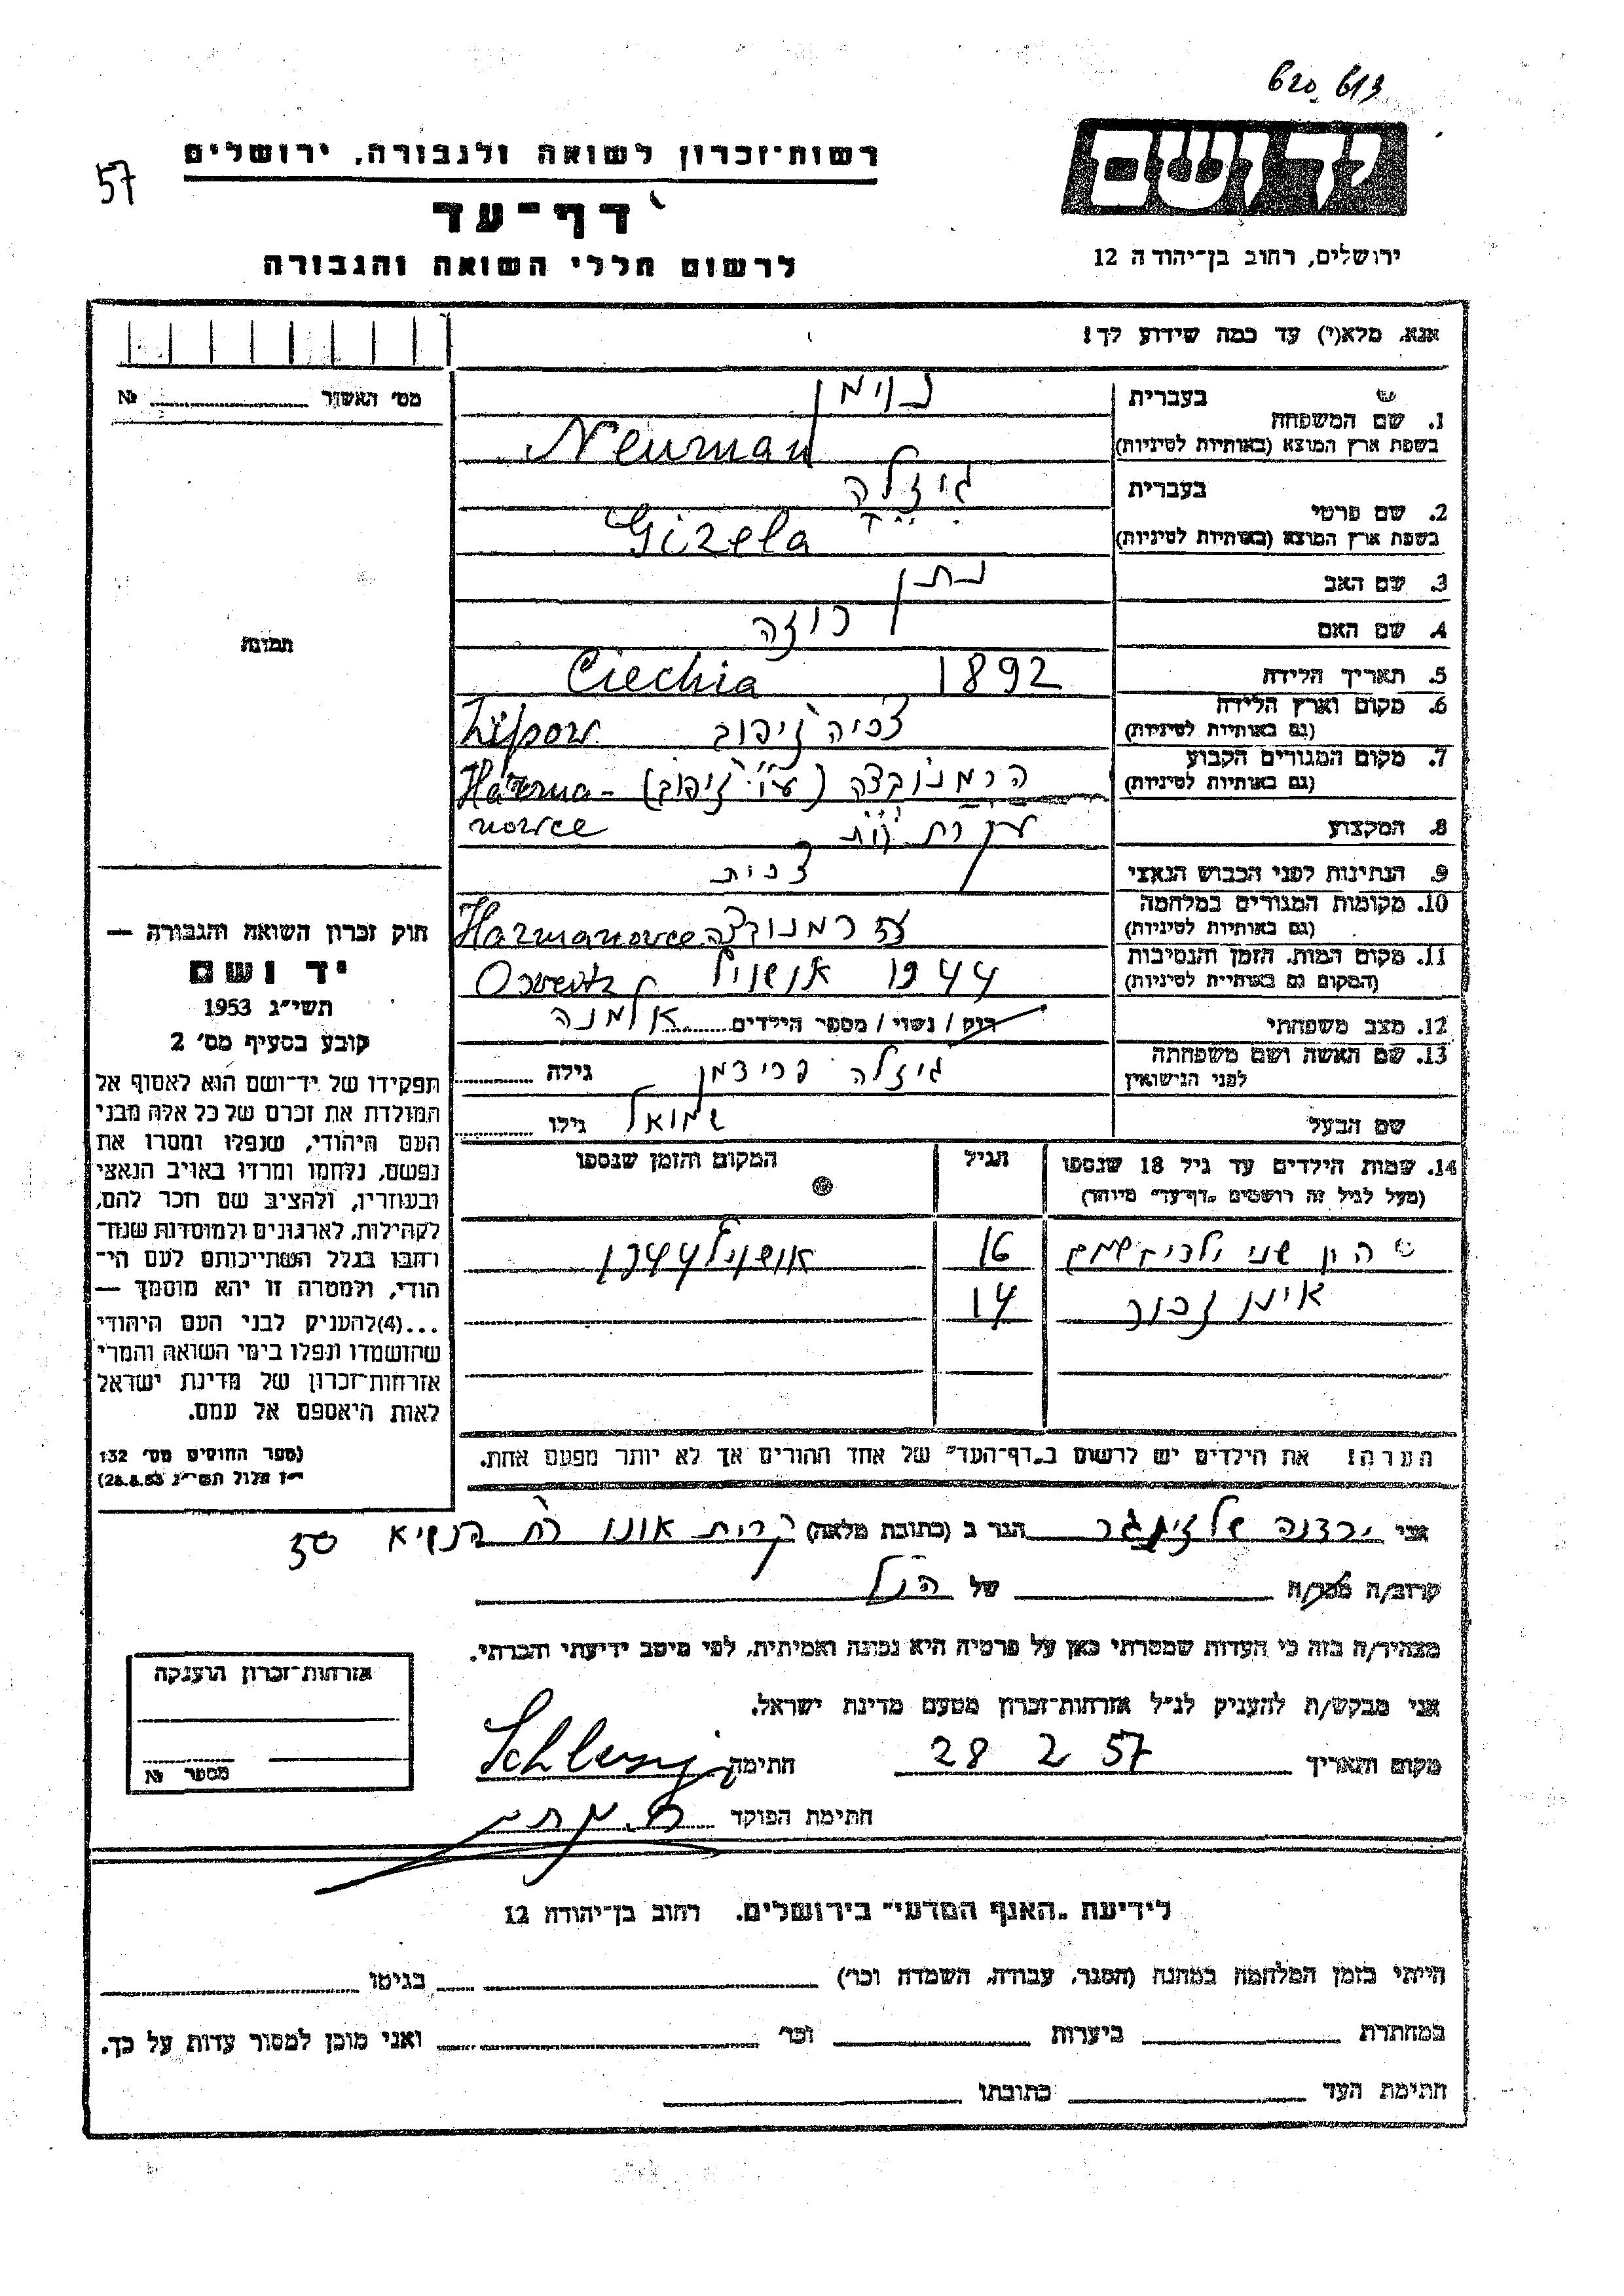 620 613
57
רשות־זכרון לשואה ולגבורה, ירושלים
דף־עד
לרשום חללי השואה והגבורה
ידושם
ירושלים, רחוב בן־יהודה 12
אנא, מלא(י) עד כמה שידוע לך!
מס׳ האשור № 
בעברית
נוימן
1. שם המשפחה
בשפת ארץ המוצא (באותיות לטיניות)
Neuman
בעברית
גיזלה
2. שם פרטי
בשפת ארץ המוצא (באותיות לטיניות)
Gizela
3. שם האב נתן
4. שם האם רוזה
תמונה
5. תאריך הלידה 1892 Ciechia
6. מקום וארץ הלידה
(גם באותיות לטיניות)
צכיה זיפוב Zipow
7. מקום המגורים הקבוע
(גם באותיות לטיניות)
הרמנובצה (ע״י זיפוב) Harma-
nowce
8. המקצוע עקרת בית
9. הנתינות לפני הכבוש הנאצי צכית
10. מקומות המגורים במלחמה
(גם באותיות לטיניות)
הרמנובצה Harmanowce
11. מקום המות, הזמן והנסיבות
(המקום גם באותיות לטיניות)
1944 אושויץ Osweitz
12. מצב משפחתי
רוק / נשוי / מספר הילדים אלמנה
13. שם האשה ושם משפחתה
לפני הנישואין
גיזלה פרידמן גילה
שם הבעל שמואל גילו
14. שמות הילדים עד גיל 18 שנספו
(מעל לגיל זה רושמים „דף־עד״ מיוחד)
הגיל
המקום והזמן שנספו
16 אושויץ 1944
14
הערה! את הילדים יש לרשום ב„דף־העד״ של אחד ההורים אך לא יותר מפעם אחת.
חוק זכרון השואה והגבורה —
יד ושם
תשי״ג 1953
קובע בסעיף מס׳ 2
תפקידו של יד־ושם הוא לאסוף אל
המולדת את זכרם של כל אלה מבני
העם היהודי, שנפלו ומסרו את
נפשם, נלחמו ומרדו באויב הנאצי
ובעוזריו, ולהציב שם וזכר להם,
לקהילות, לארגונים ולמוסדות שנח־
רבו בגלל השתייכותם לעם הי־
הודי, ולמטרה זו יהא מוסמך —
...(4)להעניק לבני העם היהודי
שהושמדו ונפלו בימי השואה והמרי
אזרחות־זכרון של מדינת ישראל
לאות היאספם אל עמם.
(ספר החוקים מס׳ 132
י״ז אלול תשי״ג 28.8.53)
אני ירדנה שלזינגר הגר ב (כתובת מלאה) קרית אונו רח׳ הנשיא 50
קרוב/ה מכר/ה של הנ״ל
מצהיר/ה בזה כי העדות שמסרתי כאן על פרטיה היא נכונה ואמיתית, לפי מיטב ידיעתי והכרתי.
אני מבקש/ת להעניק לנ״ל אזרחות־זכרון מטעם מדינת ישראל.
מקום ותאריך 28 2 57 חתימה
חתימת הפוקד
אזרחות־זכרון הוענקה
מספר №
לידיעת „האגף המדעי״ בירושלים, רחוב בן־יהודה 12
הייתי בזמן המלחמה במחנה (הסגר, עבודה, השמדה וכו׳) בגיטו
במחתרת ביערות וכו׳ ואני מוכן למסור עדות על כך.
חתימת העד כתובתו